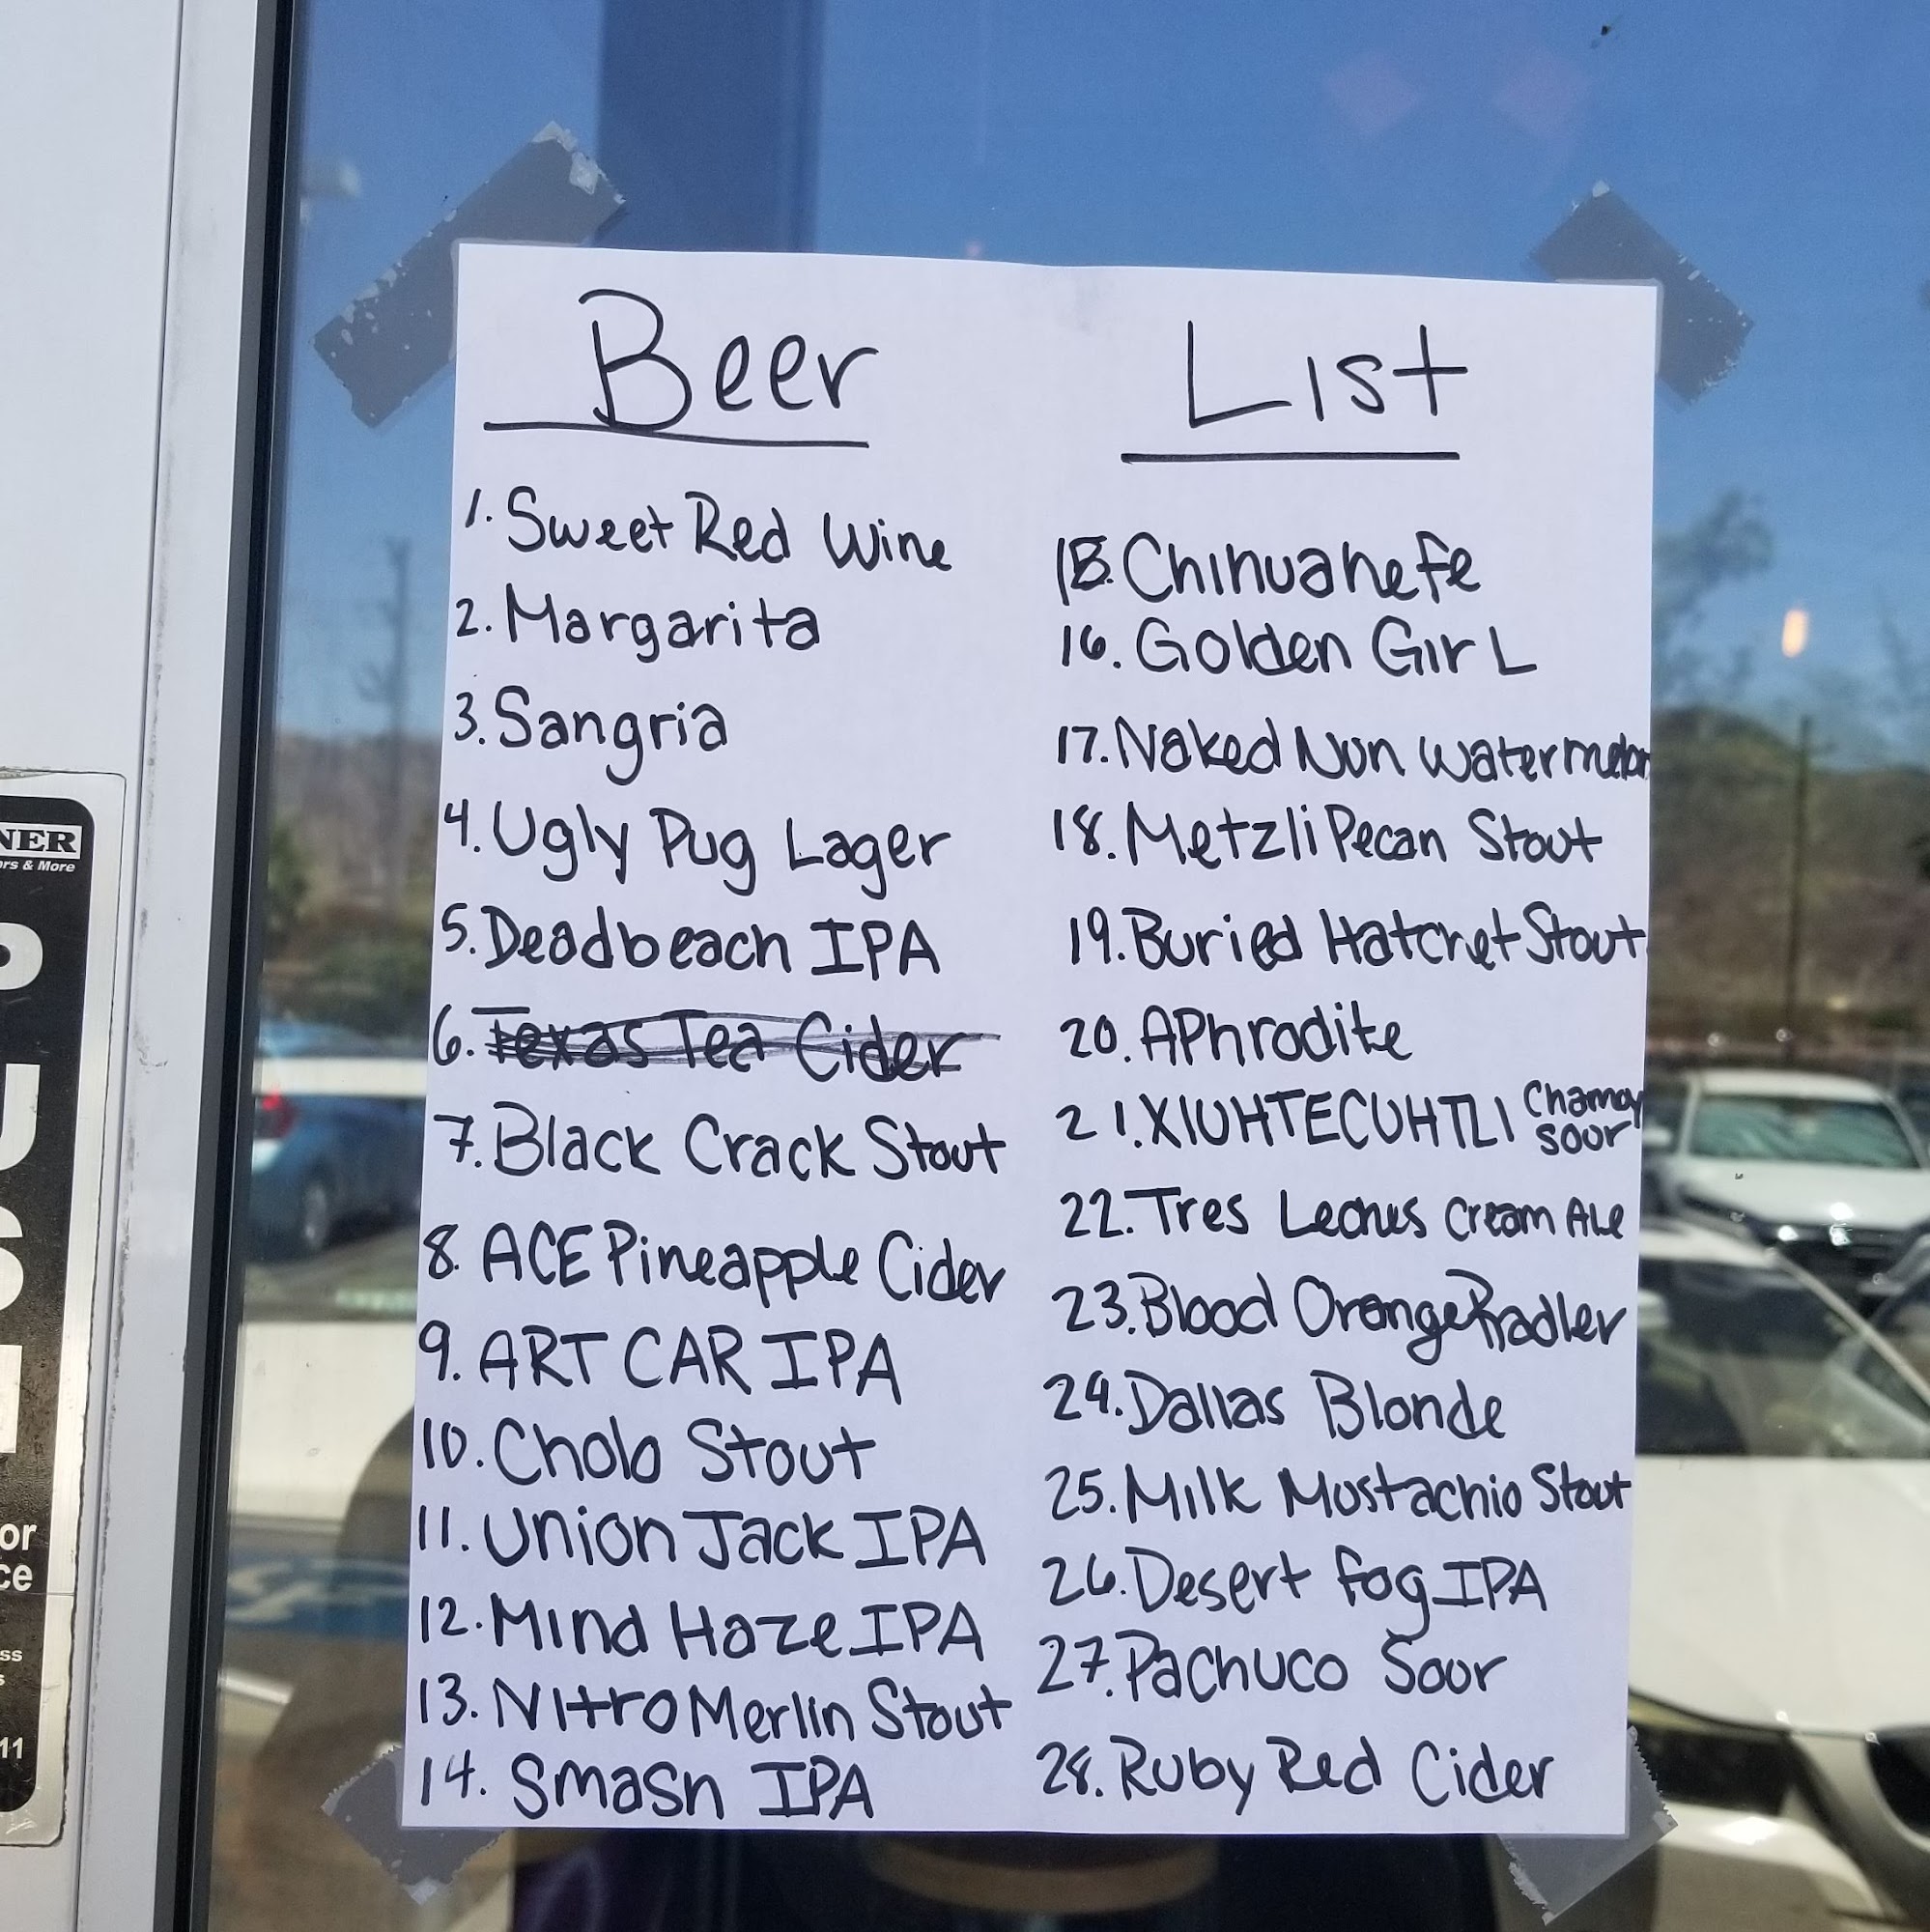 Beer List
1. Sweet Red Wine
2. Margarita
3. Sangria
4. Ugly Pug Lager
5. Deadbeach IPA
6. Texas Tea Cider
7. Black Crack Stout
8. ACE Pineapple Cider
9. ART CAR IPA
10. Cholo Stout
11. Union Jack IPA
12. Mind Haze IPA
13. Nitro Merlin Stout
14. Smash IPA
15. Chihuahefe
16. Golden Girl
17. Naked Nun Watermelon
18. Metzli Pecan Stout
19. Buried Hatchet Stout
20. APhrodite
21. XIUHTECUHTLI Chamoy
Sour
22. Tres Leches Cream Ale
23. Blood Orange Radler
24. Dallas Blonde
25. Milk Mustachio Stout
26. Desert fog IPA
27. Pachuco Sour
28. Ruby Red Cider
NER
ors & More
P
U
S
or
ce
ss
s
11